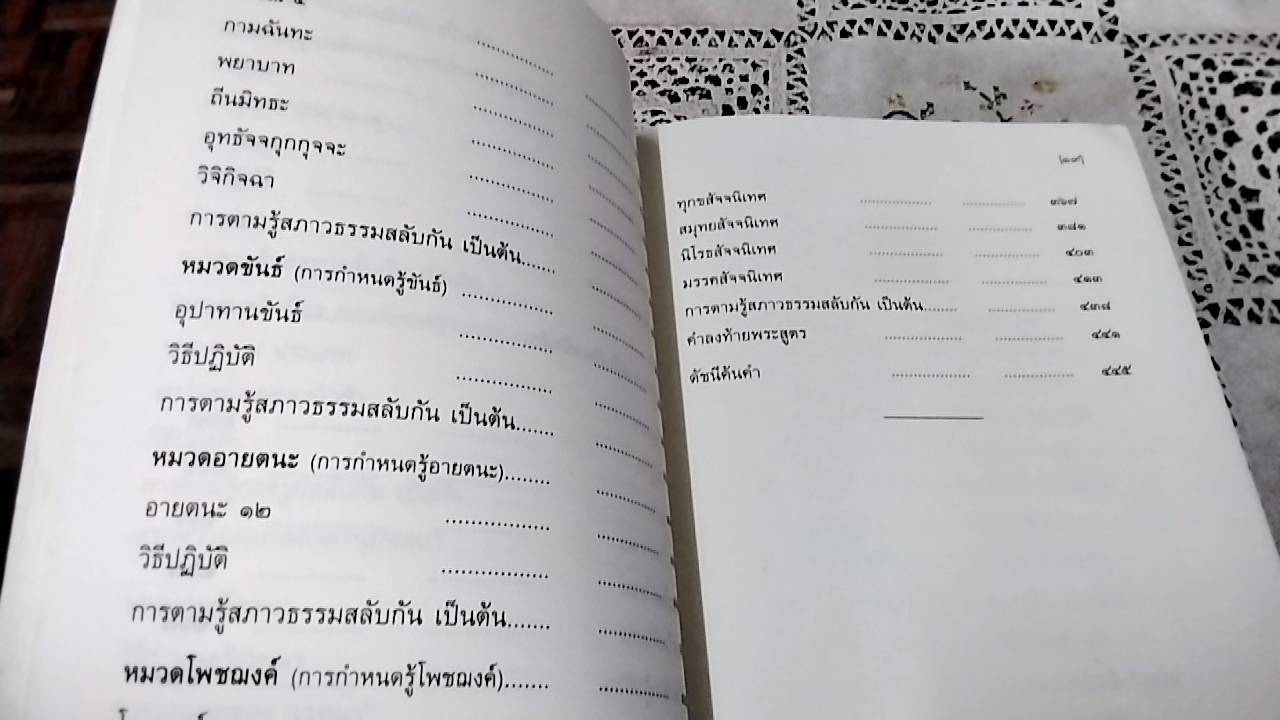 กามฉันทะ ............... 
พยาบาท ...............
ถีนมิทธะ ...............
อุทธัจจกุกกุจจะ ...............
วิจิกิจฉา ...............
การตามรู้สภาวธรรมสลับกัน เป็นต้น.......
หมวดขันธ์ (การกำหนดรู้ขันธ์) ...............
อุปาทานขันธ์ ...............
วิธีปฏิบัติ ...............
การตามรู้สภาวธรรมสลับกัน เป็นต้น.......
หมวดอายตนะ (การกำหนดรู้อายตนะ)........
อายตนะ ๑๒ ...............
วิธีปฏิบัติ ...............
การตามรู้สภาวธรรมสลับกัน เป็นต้น.......
หมวดโพชฌงค์ (การกำหนดรู้โพชฌงค์).......
ทุกขสัจจนิเทศ ............... ............... ๓๖๗
สมุทยสัจจนิเทศ ............... ............... ๓๘๑
นิโรธสัจจนิเทศ ............... ............... ๔๐๓
มรรคสัจจนิเทศ ............... ............... ๔๑๓
การตามรู้สภาวธรรมสลับกัน เป็นต้น........ ............... ๔๓๘
คำลงท้ายพระสูตร ............... ............... ๔๔๑
ดัชนีค้นคำ ............... ............... ๔๔๕